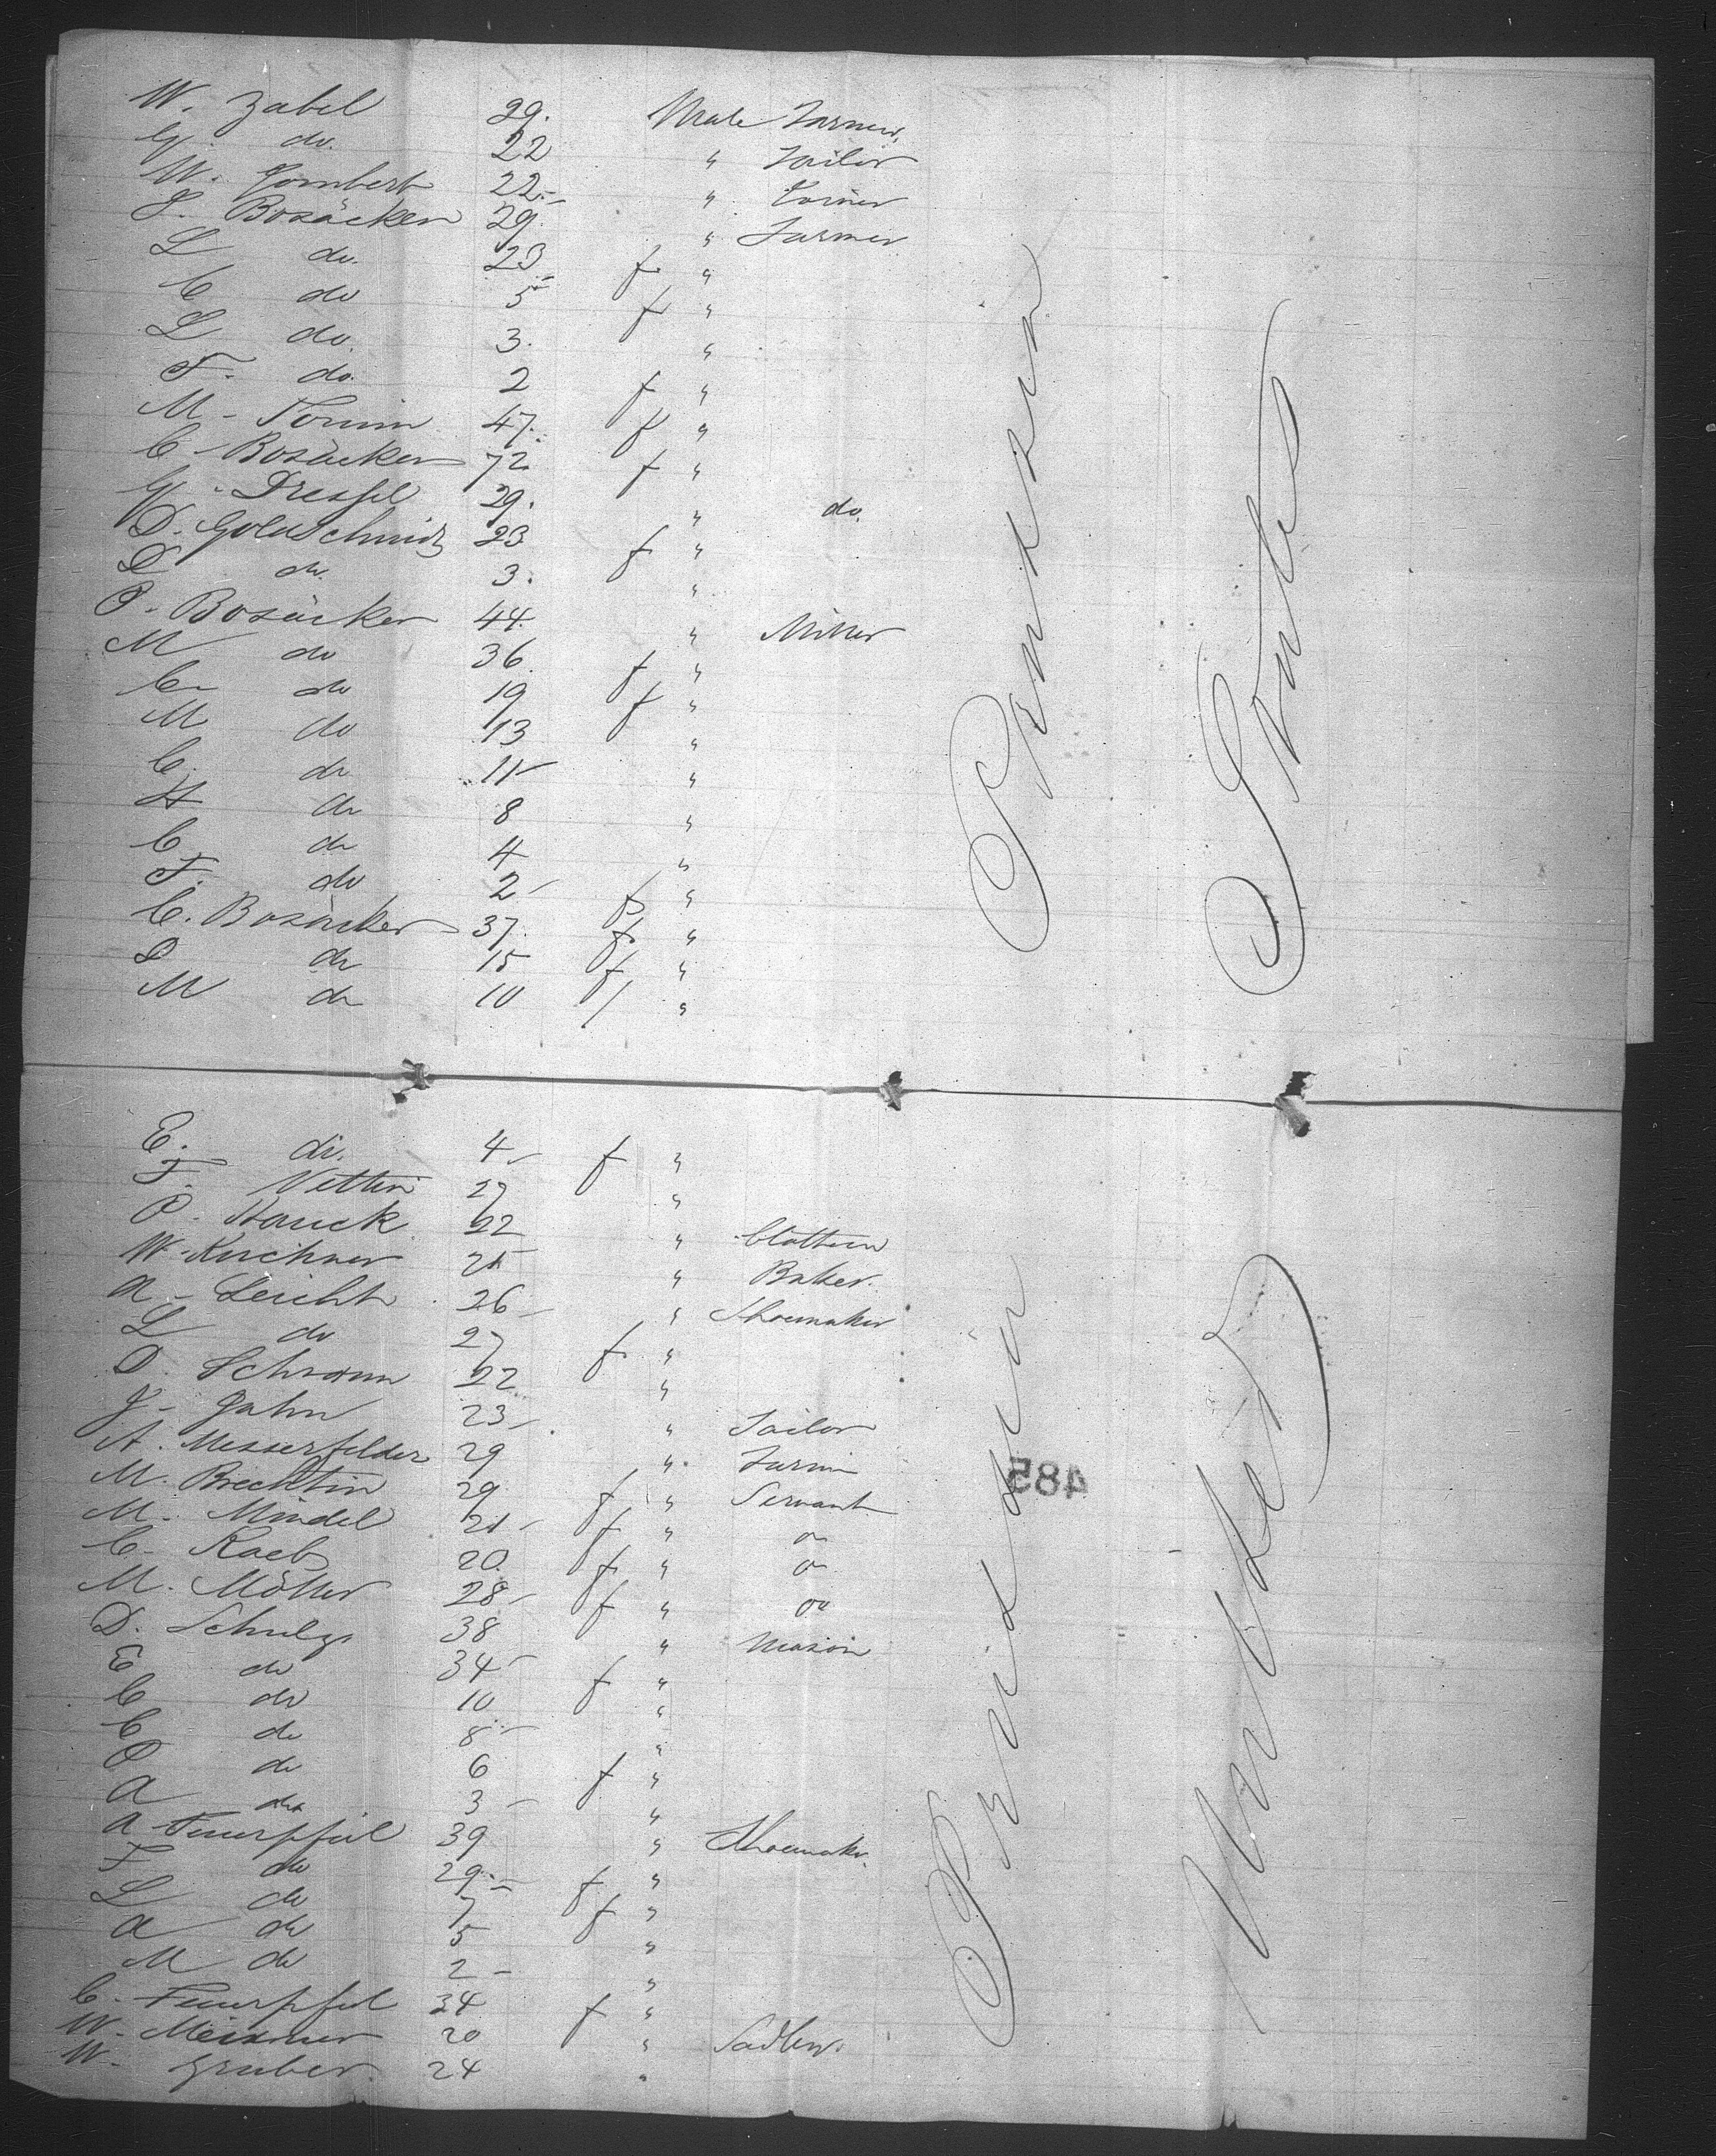 W. Zabel 29. Male Farmer
G. do. 22 " Tailor
W. Gombert 22.- "
J. Bosäcker 29. " Farmer
L do. 23 f "
C do 5 f "
L do. 3. "
F. do. 2 f "
M - 47. f "
C - Bosäcker 72 f "
G - Dressel 29. " do.
D. Goldschmidt 23 f "
D do. 3. "
P. Bosäcker 44. " Miller
M do 36. f "
C- do 19 f "
M do 13 "
C. do 11- "
H do 8 "
C. do 4 "
F. do 2- f "
C. Bosäcker 37. f "
D do 15 f "
M do 10 f "
E. do. 4- f "
F. Vetter 27 "
P. Hauck 22 "
W. Kirchner 25 " Baker.
A - Leicht 26- " Shoemaker
L do 27 f "
D. Schramm 22 "
J - Jahn 23- " Tailor
A. Messerfelder 29 " Farmer
M. Brechtin 29 f " Servant
M. Mindel 21- f "
C - Raeb 20. f "
M. Möller 28- f "
D. Schulze 38 " Mason
E do 34- f "
C do 10 "
C do 8- "
O do 6 f "
A do 3- "
A Feuerpfeil 39 " Shoemaker.
F do 29.- f "
L do 7 f "
A do 5 "
M do 2- "
C. Feuerpfeil 34 f "
W. Meixner 20 " Sadler.
W. Gruber. 24 "
485